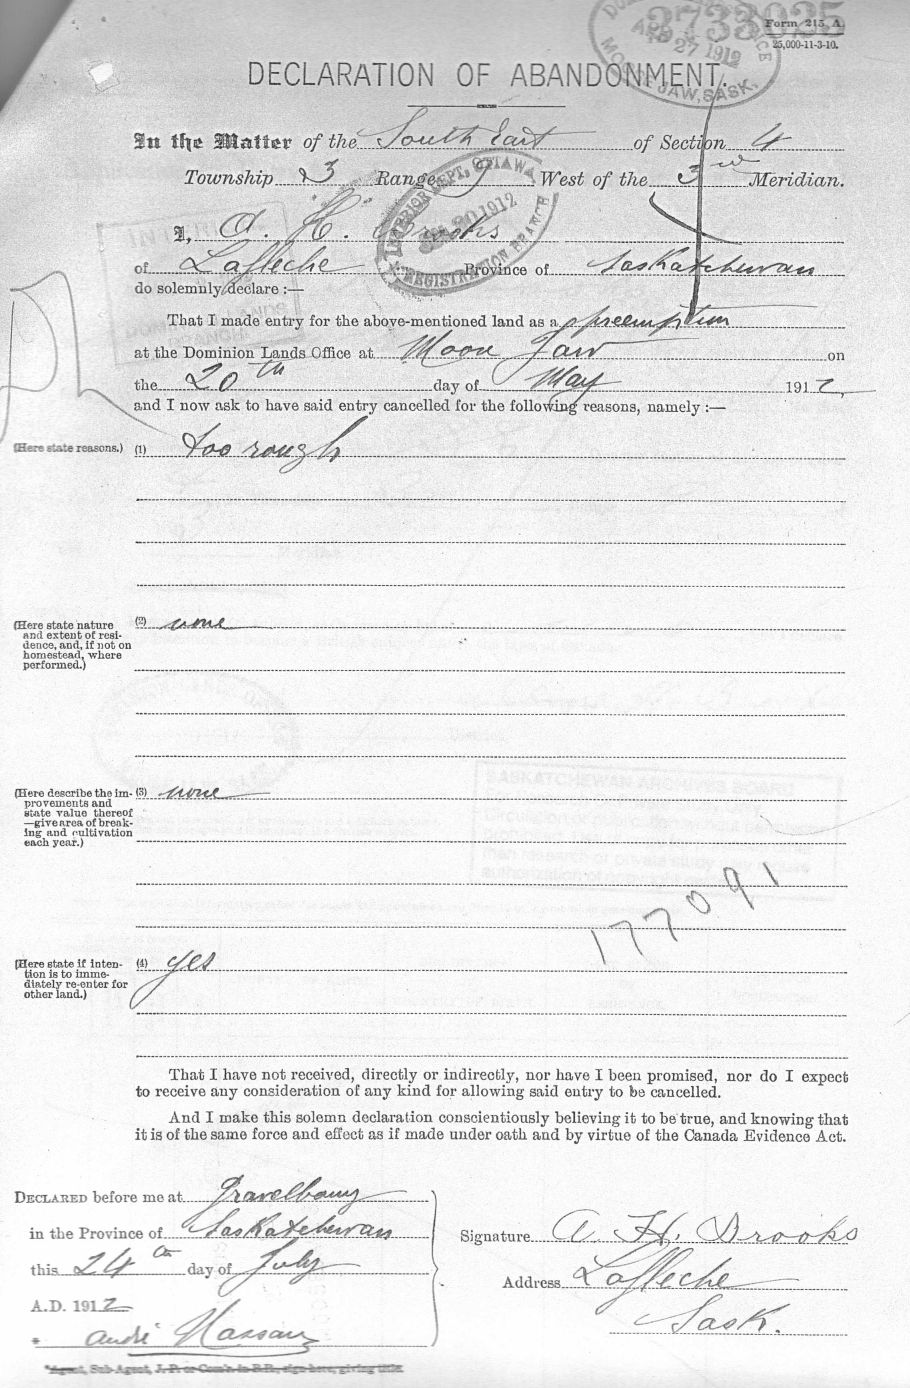 Form 215 A
25,000-11-3-10.
2733035
MOOSE JAW, SASK.
27 1912
DECLARATION OF ABANDONMENT.
In the Matter of the South East of Section 4
Township 3 Range 9 West of the 3rd Meridian.
INTERIOR DEPT. OTTAWA
30 1912
REGISTRATION BRANCH
I, A. H. Brooks
of Lafleche Province of Saskatchewan
do solemnly declare :—
That I made entry for the above-mentioned land as a preemption
at the Dominion Lands Office at Moose Jaw on
the 20th day of May 1912,
and I now ask to have said entry cancelled for the following reasons, namely :—
(Here state reasons.) (1) too rough
(Here state nature and extent of resi-
dence, and, if not on
homestead, where
performed.) (2) none
(Here describe the im-
provements and
state value thereof
—give area of break-
ing and cultivation
each year.) (3) none
177091
(Here state if inten-
tion is to imme-
diately re-enter for
other land.) (4) yes
That I have not received, directly or indirectly, nor have I been promised, nor do I expect
to receive any consideration of any kind for allowing said entry to be cancelled.
And I make this solemn declaration conscientiously believing it to be true, and knowing that
it is of the same force and effect as if made under oath and by virtue of the Canada Evidence Act.
DECLARED before me at Gravelbourg
in the Province of Saskatchewan
this 24th day of July
A.D. 1912
André
Signature A. H. Brooks
Address Lafleche
Sask.